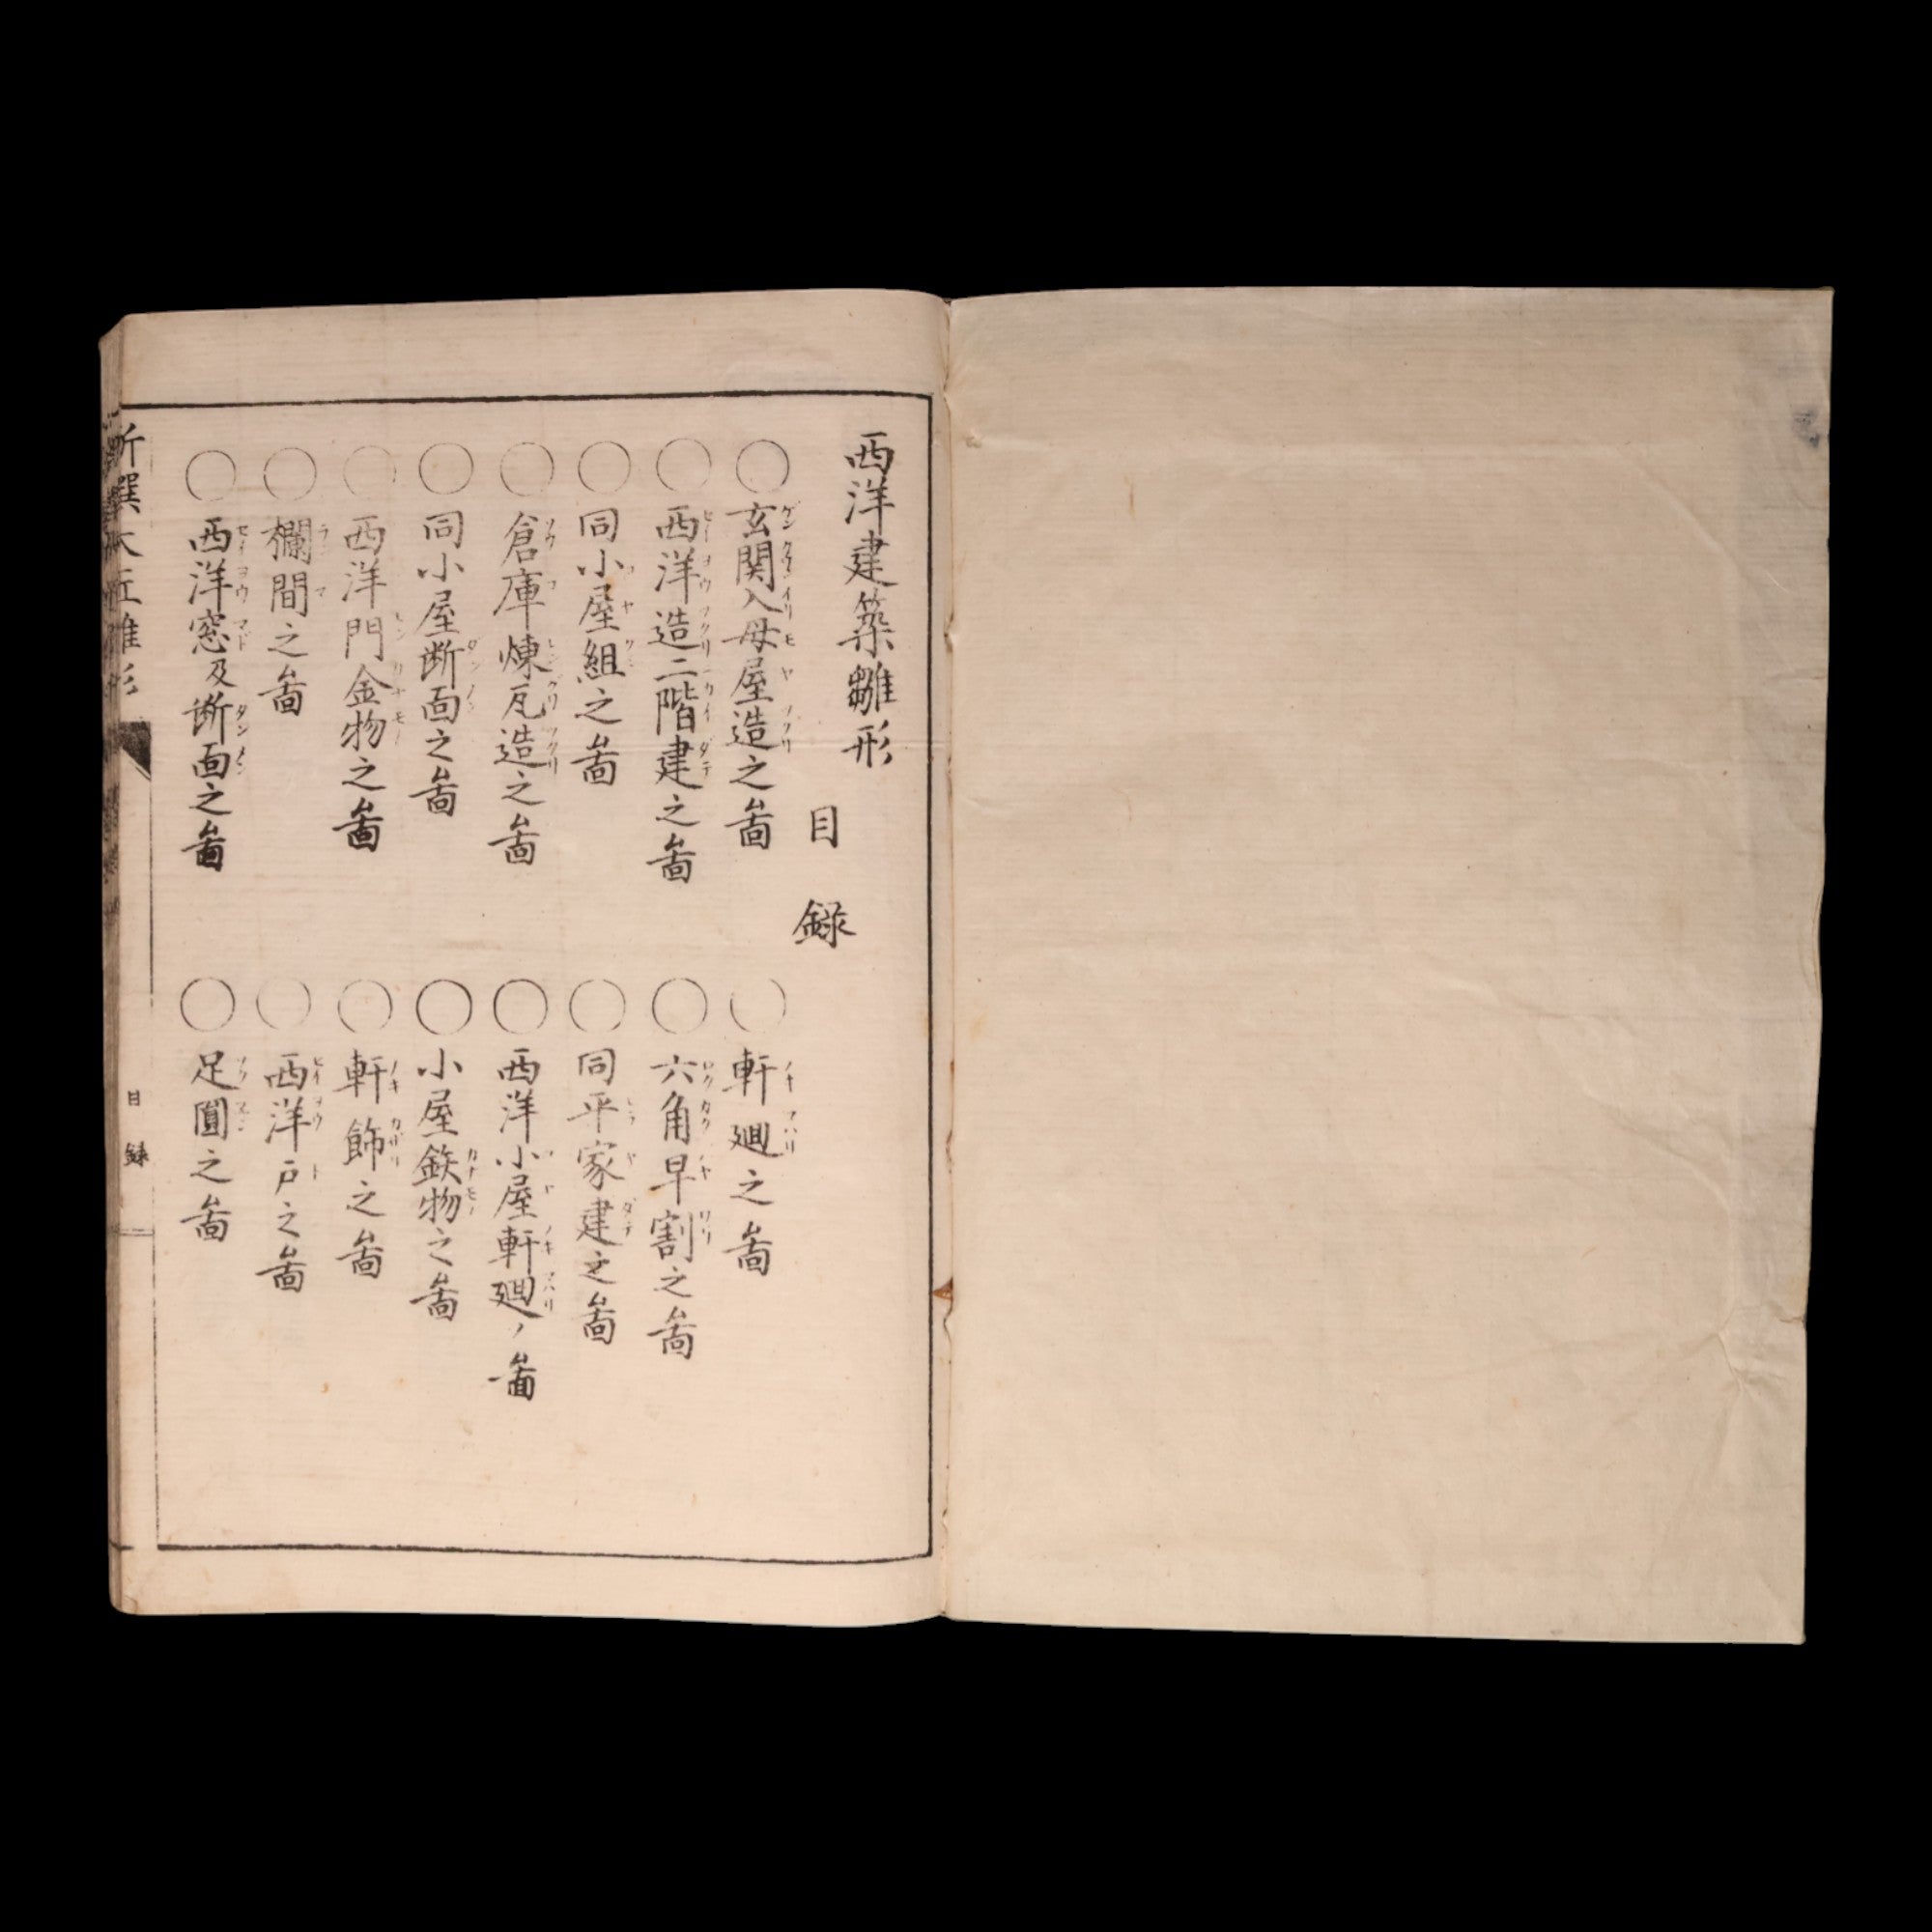 西洋建築雛形
目録
○玄関入母屋造之啚
○軒廽之啚
○西洋造二階建之啚
○六角早割之啚
○同小屋組之啚
○同平家建之啚
○倉庫煉瓦造之啚
○西洋小屋軒廽ノ啚
○同小屋断面之啚
○小屋鉄物之啚
○西洋門金物之啚
○軒飾之啚
○欄間之啚
○西洋戸之啚
○西洋窓及断面之啚
○足圓之啚
新撰大匠雛形
目録